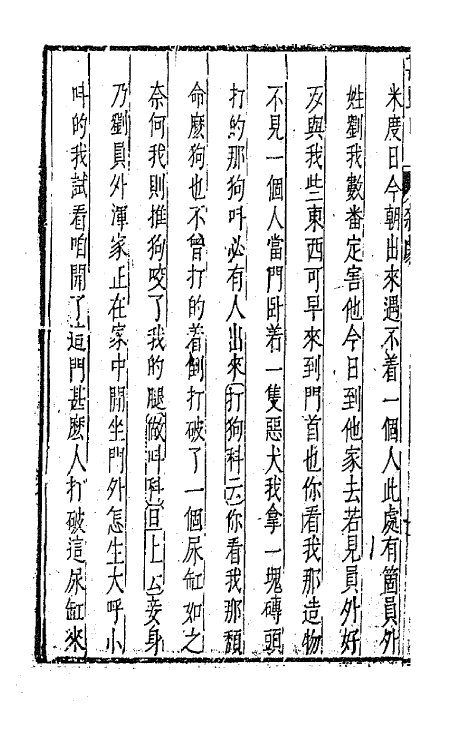 米度日今朝出來遇不着一個人此處有箇員外
姓劉我數番定害他今日到他家去若見員外好
歹與我些東西可早來到門首也你看我那造物
不見一個人當門卧着一隻惡犬我拿一塊磚頭
打的那狗呌必有人出來(打狗科云)你看我那頹
命麽狗也不曾打的着倒打破了一個尿缸如之
奈何我則推狗咬了我的腿(做呌科)(旦上云)妾身
乃劉員外渾家正在家中閒坐門外怎生大呼小
呌的我試看咱開了這門甚麽人打破這尿缸來